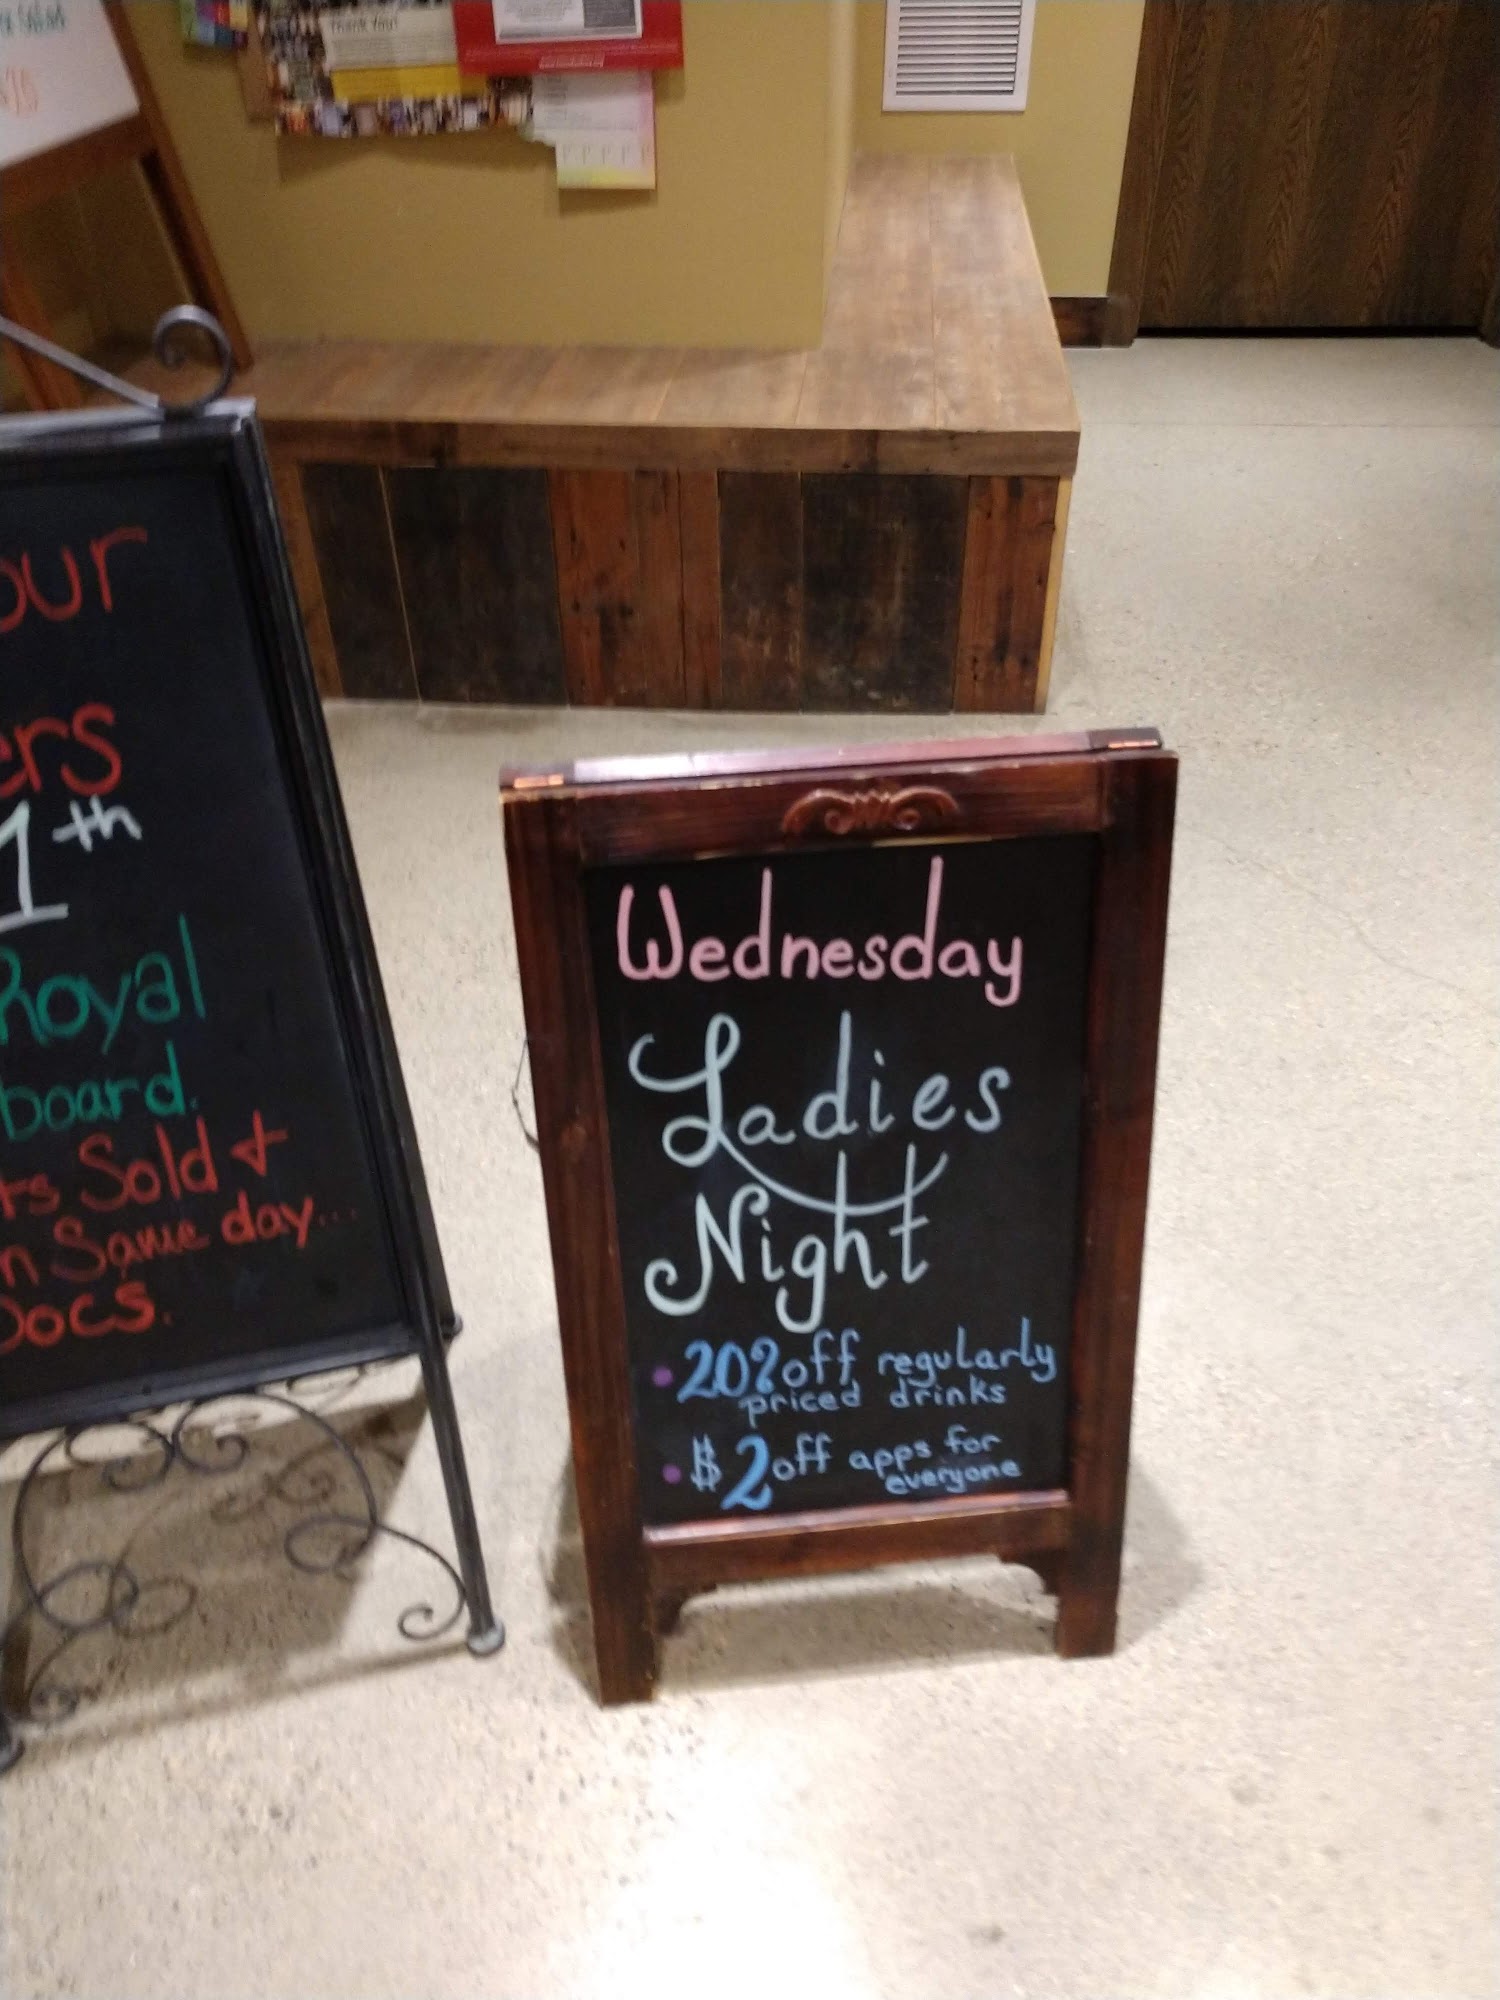 Thank You!
Royal
board.
Sold &
Same day...
Docs.
Wednesday
Ladies
Night
• 20% off regularly
priced drinks
• $2 off apps for
everyone